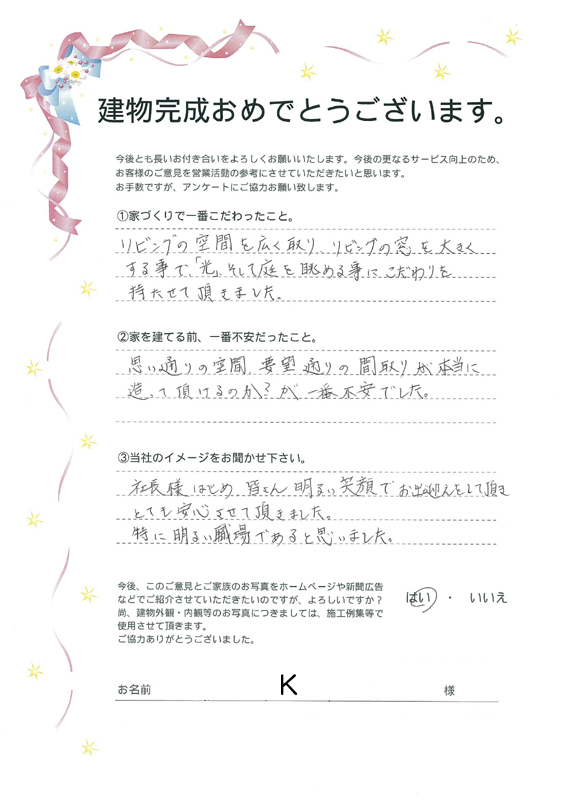 建物完成おめでとうございます。
今後とも長いお付き合いをよろしくお願いいたします。今後の更なるサービス向上のため、
お客様のご意見を営業活動の参考にさせていただきたいと思います。
お手数ですが、アンケートにご協力お願い致します。
①家づくりで一番こだわったこと。
リビングの空間を広く取り、リビングの窓を大きく
する事で、「光」、そして庭を眺める事にこだわりを
持たせて頂きました。
②家を建てる前、一番不安だったこと。
思い通りの空間、要望通りの間取りが本当に
造って頂けるのか?が一番不安でした。
③当社のイメージをお聞かせ下さい。
社長様はじめ、皆さん明るい笑顔でお出迎えをして頂き
とても安心させて頂きました。
特に明るい職場であると思いました。
今後、このご意見とご家族のお写真をホームページや新聞広告
などでご紹介させていただきたいのですが、よろしいですか?
はい ・ いいえ
尚、建物外観・内観等のお写真につきましては、施工例集等で
使用させて頂きます。
ご協力ありがとうございました。
お名前 K 様